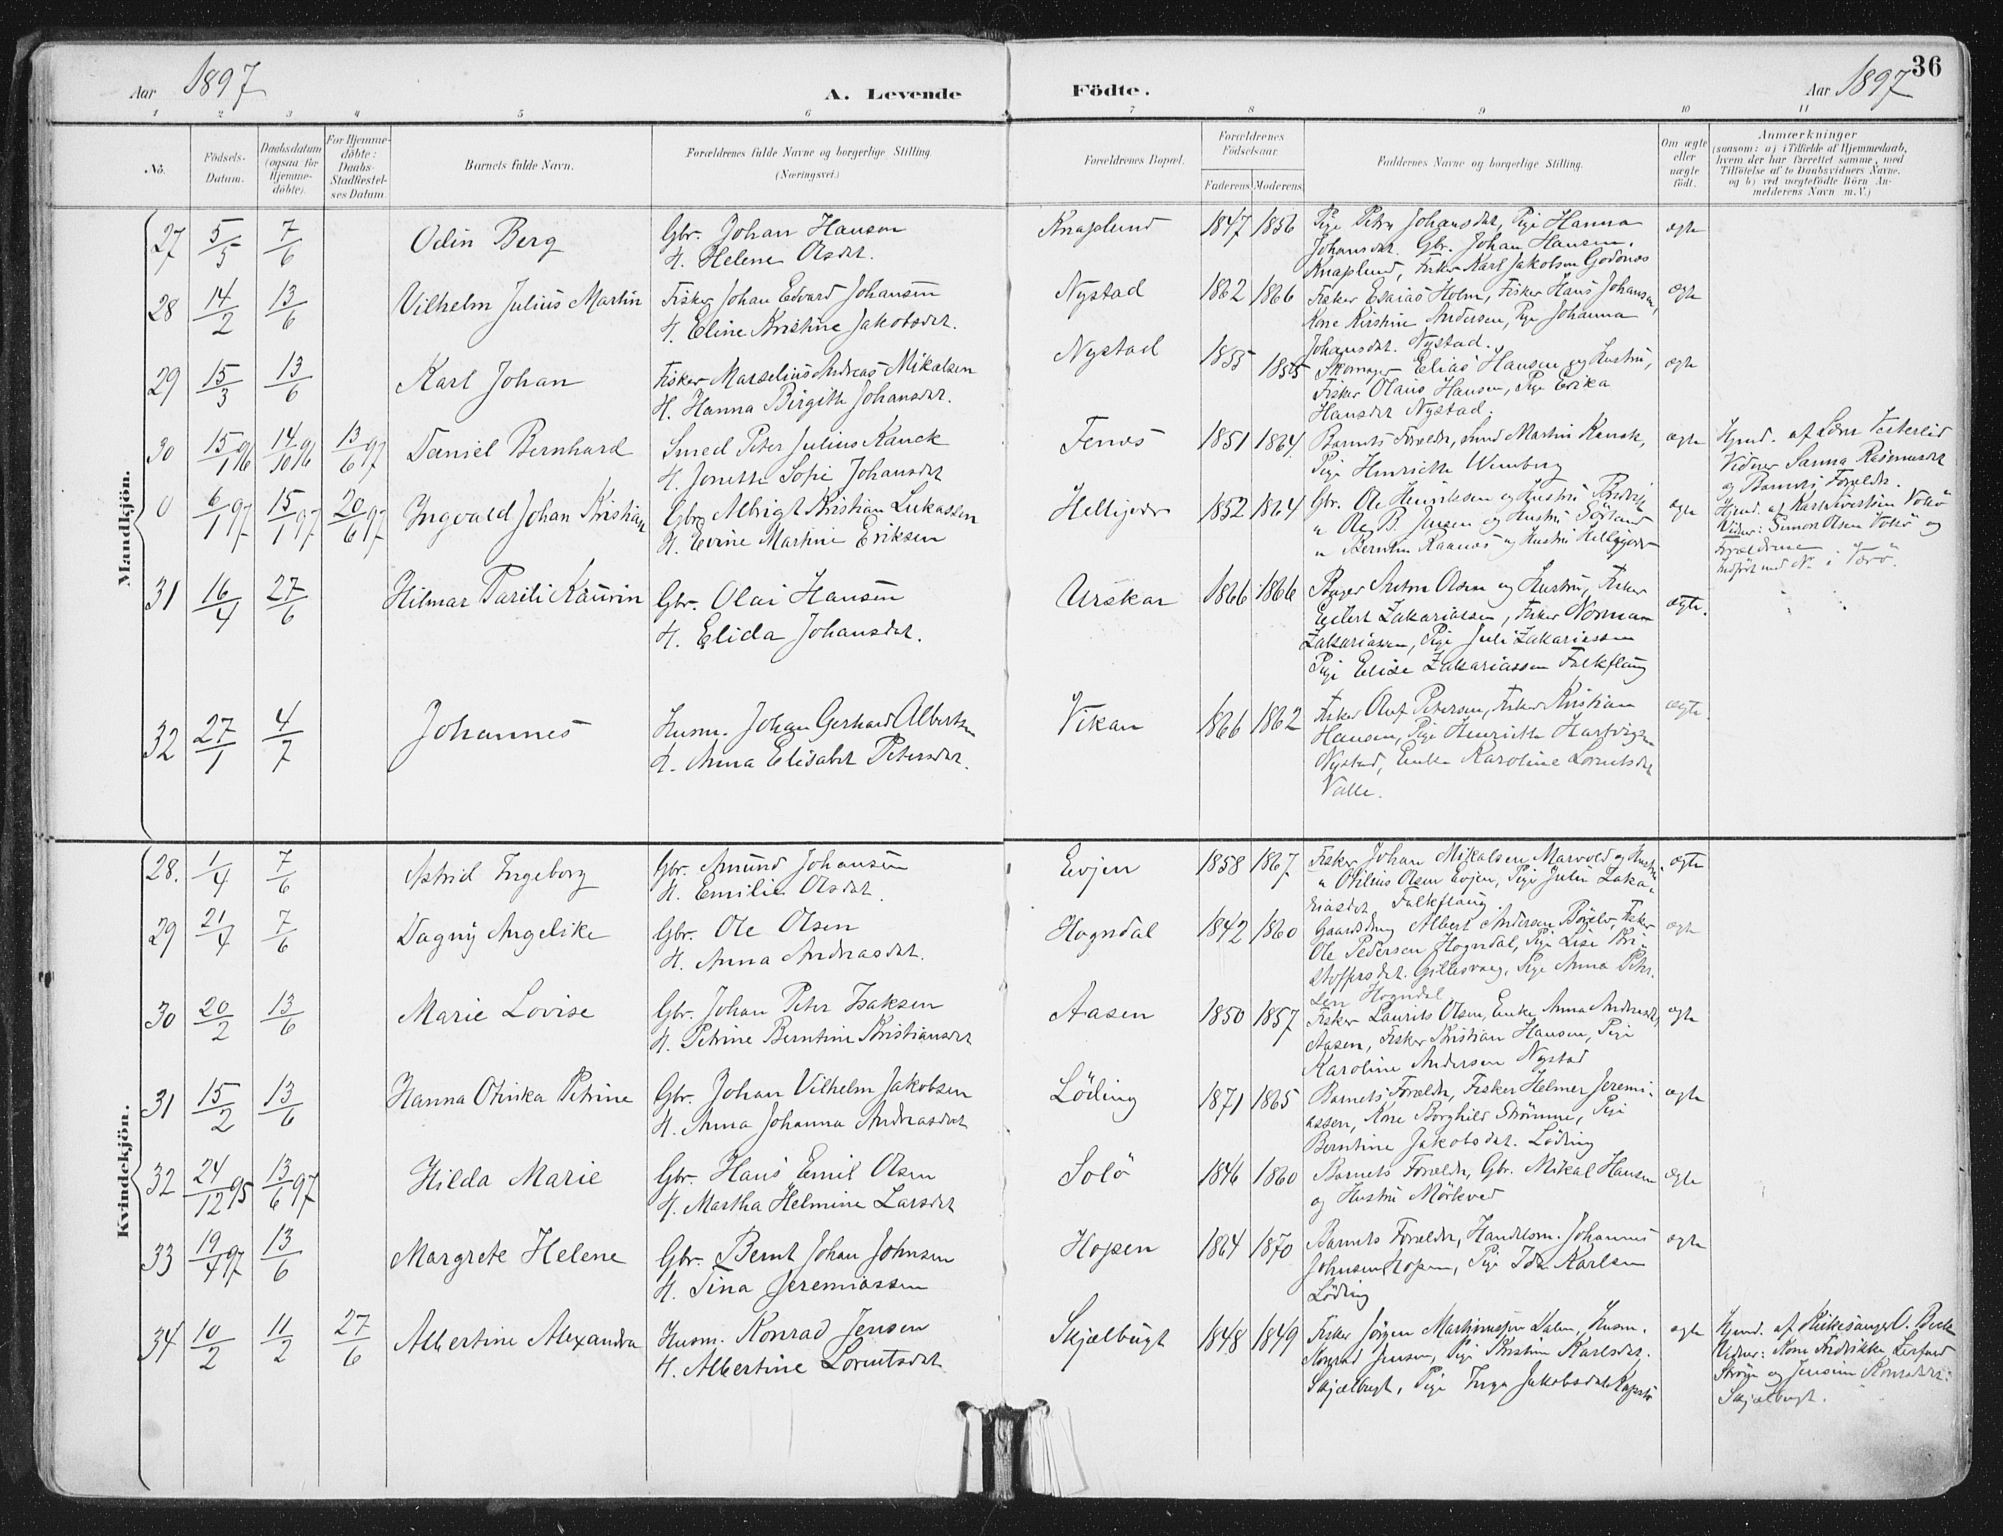 Aar 1897
A. Levende Födte.
36
Aar 1897
1 2 3 4 5 6 7 8 9 10 11
No.
Födsels-
Datum.
Daabsdatum
(ogsaa for
Hjemme-
döbte).
For Hjemme-
döbte:
Daabs-
Stadfæstel-
ses Datum
Barnets fulde Navn.
Forældrenes fulde Navne og borgerlige Stilling.
(Næringsvei.)
Forældrenes Bopæl.
Forældrenes
Födselsaar.
Faderens Moderens
Faddernes Navne og borgerlige Stilling.
Om ægte
eller
uægte
født.
Anmærkninger
(saasom: a) i Tilfælde af Hjemmedaab,
hvem der har forrettet samme, med
Tilföielse af to Daabsvidners Navne.
og b) ved uægtefödte Börn An-
melderens Navn m. V.)
Mandkjön.
27 5/5 7/6 Odin Berg
Gbr. Johan Hansen
H. Helene Olsdat.
Knaplund 1847 1856
Pige Petra Johansdat, Pige Hanna
Johansdat. Gbr. Johan Hansen.
Knaplund, Fisker Karl Jakobsen Godønes
ægte
28 14/2 13/6 Vilhelm Julius Martin
Fisker Johan Edvard Johansen
H. Eline Kristine Jakobsdat.
Nystad 1862 1866
Fisker Esaias Holm, Fisker Hans Johansen,
Kone Kirstine Andersen, Pige Johanna
Johansdat. Nystad.
ægte
29 15/3 13/6 Karl Johan
Fisker Marselius Andreas Mikalsen
H. Hanna Birgitte Johansdat.
Nystad 1855 1855
Skomager Elias Hansen og Hustru,
Fisker Olaus Hansen, Pige Erika
Hansdat Nystad.
ægte
30 15/1 96 14/10 96 13/6 97 Daniel Bernhard
Smed Peter Julius Kanck
H. Jonette Sofie Johansdat
Fenes 1851 1864.
Barnets Forældre, Smed Martin Kanck,
Pige Henriette Wenberg
ægte
Hjmd. af Lærer Vesterlid
Vidner Sanna Rasmusdat
og Barnets Forældre.
0 6/1 97 15/1 97 20/6 97 Ingvald Johan Kristian
Gbr. Albrigt Kristian Lukassen
H. Evine Martine Eriksen
Helligvær 1852 1864
Gbr. Ole Henriksen og Hustru
" Ole B. Jensen og Hustru Sörland
" Raanes og Hustru Helligvær
ægte
Hjmd. af
Vidner: Simon Olsen og
Forældrene
Indført med No i Værö.
31 16/4 27/6 Hilmar Parili Kaurin
Gbr. Olai Hansen
H. Elida Johansdat.
Urskar 1866 1866
Anton Olsen og Hustru, Fisker
Eilert Zakariassen, Fisker Norman
Zakariassen, Pige Juli Zakariassen
Pige Elise Zakariassen Falkflaug
ægte.
32 27/1 4/7 Johannes
Husm. Johan Gerhard Albertsen
H. Anna Elisabet Petersdat.
Vikan 1866 1862
Fisker Oluf Petersen, Fisker Kristian
Hansen, Pige Henriette Hartvigsen
Nystad, Enke Karoline Lorntsdat
Valle.
ægte
Kvindekjön.
28. 1/4 7/6 Astrid Ingeborg
Gbr. Amund Johansen
H. Emilie Olsdat.
Evjen 1858 1867
Fisker Johan Mikalsen Marvold og Hustru
" Otilius Olsen Evjen, Pige Julie Zaka-
riasdat, Falkflaug
ægte
29 21/4 7/6 Dagny Angelike
Gbr. Ole Olsen
H. Anna Andreasdat.
Hogndal 1842 1860
Gaardsdreng Albert Andersen Fisker
Ole Pedersen Hogndal, Pige Lise Kri-
stoffersdat. Gillesvaag, Pige Anna Peter-
sen Hogndal
ægte
30 20/2 13/6 Marie Lovise
Gbr. Johan Peter Isaksen
H. Petrine Berntine Kristiansdat
Aasen 1850 1857
Fisker Laurits Olsen, Enke Anna Andreasdat,
Aasen, Fisker Kristian Hansen, Pige
Karoline Andersen Nystad
ægte
31 15/2 13/6 Hanna Otinka Petrine
Gbr. Johan Vilhelm Jakobsen
H. Anna Johanna Andreasdat
Löding 1871 1865
Barnets Forældre, Fisker Helmer Jeremi-
assen, Kone Borghild Strömme, Pige
Berntine Jakobsdat. Löding
ægte
32 24/12 95 13/6 97 Hilda Marie
Gbr. Hans Emil Olsen
H. Martha Helmine Larsdat
Solö 1846 1860
Barnets Forældre, Gbr. Mikal Hansen
og Hustru Mörkved
ægte
33 19/4 97 13/6 Margrete Helene
Gbr. Bernt Johan Johnsen
H. Tina Jeremiassen
Hopen 1864 1870
Barnets Forældre, Handlsm. Johannes
Johnsen Hopen, Pige Ida Karlsen
Löding
ægte
34 10/2 11/2 27/6 Albertine Alexandra
Husm. Konrad Jensen
H. Albertine Lorntsdat
Skjælbugt 1848 1849
Fisker Jørgen Martinussen Valen, Husm.
Konrad Jensen, Pige Kristine Karlsdat.
Skjælbugt, Pige Inga Jakobsdat
ægte
Hjmd. af Kirkesanger O. Beck
Vidner: Kone Fredrikke
og Jensine Konradsdat.
Skjælbugt.